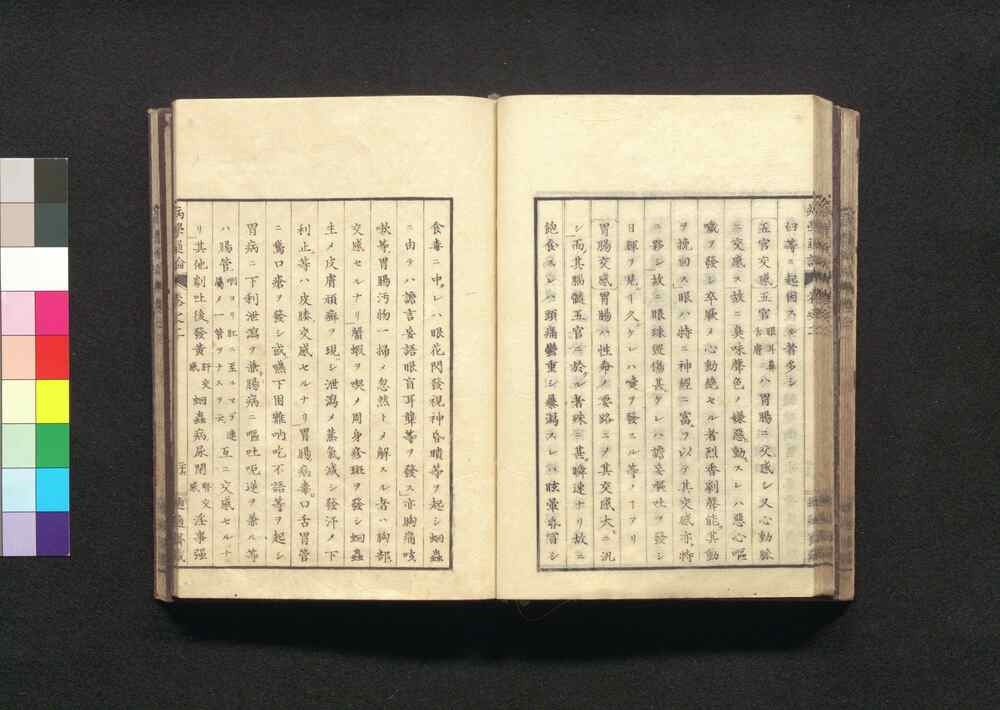 妇等ニ起因スル者多シ
五官交感五官眼耳鼻舌膚ハ胃腸ニ交感シ又心動脉
ニ交感ス故ニ臭味聲色ノ嫌惡動スレハ惡心嘔
噦ヲ發シ卒厥メ心動絶セル者烈香劇聲能其動
ヲ挽回ス眼ハ特ニ神經ニ富ヲ以テ其交感亦特
ニ夥シ故ニ眼球燙傷甚ケレハ譫妄嘔吐ヲ發シ
日輝ヲ見ルヿ久ケレハ嚏ヲ發スル等ノヿアリ
胃腸交感胃腸ハ性命ノ要路ニメ其交感大ニ汎
シ而其腦髓五官ニ於ル者殊ニ甚瞬速ナリ故ニ
飽食スレハ頭痛鬱重シ暴瀉スレハ眩暈昏冒シ
食毒ニ中レハ眼花閃發視神昏瞶等ヲ起シ蛔蟲
ニ由テハ譫言妄語眼盲耳聾等ヲ發ス亦胸痛咳
嗽等胃腸汚物一掃メ忽然トメ解スル者ハ胸部
交感セルナリ蟹蝦ヲ喫メ周身疹斑ヲ發シ蛔蟲
生メ皮膚頑癬ヲ現シ泄瀉メ蒸氣減シ發汗メ下
利止等ハ皮膝交感セルナリ胃腸病毒口舌胃管
ニ鵞口瘡ヲ發シ或嚥下困難吶吃不語等ヲ起シ
胃病ニ下利泄瀉ヲ兼腸病ニ嘔吐呃逆ヲ兼ル等
ハ腸管咽ヨリ肛ニ至ルマデ連屬メ一管ヲナスヲ云互ニ交感セルナ
リ其他劇吐後發黄肝交感蛔蟲病尿閉腎交感淫事强
病學通論 卷之二 適適齋藏